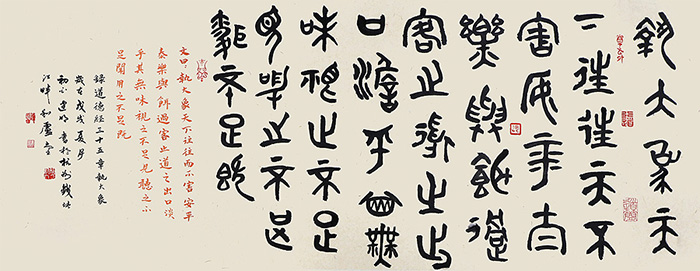 執大象天
下往往而不
害安平大
樂與餌過
客止道之出
口淡乎其無
味視之不足
見聽之不足
不足既
文曰執大象天下往往而不害安平
泰樂與餌過客止道之出口淡
乎其無味視之不足見聽之不
足聞用之不足既
錄道德經三十五章執大象
歲在戊戌夏月
初小建明書於杭州錢塘
江畔和廬